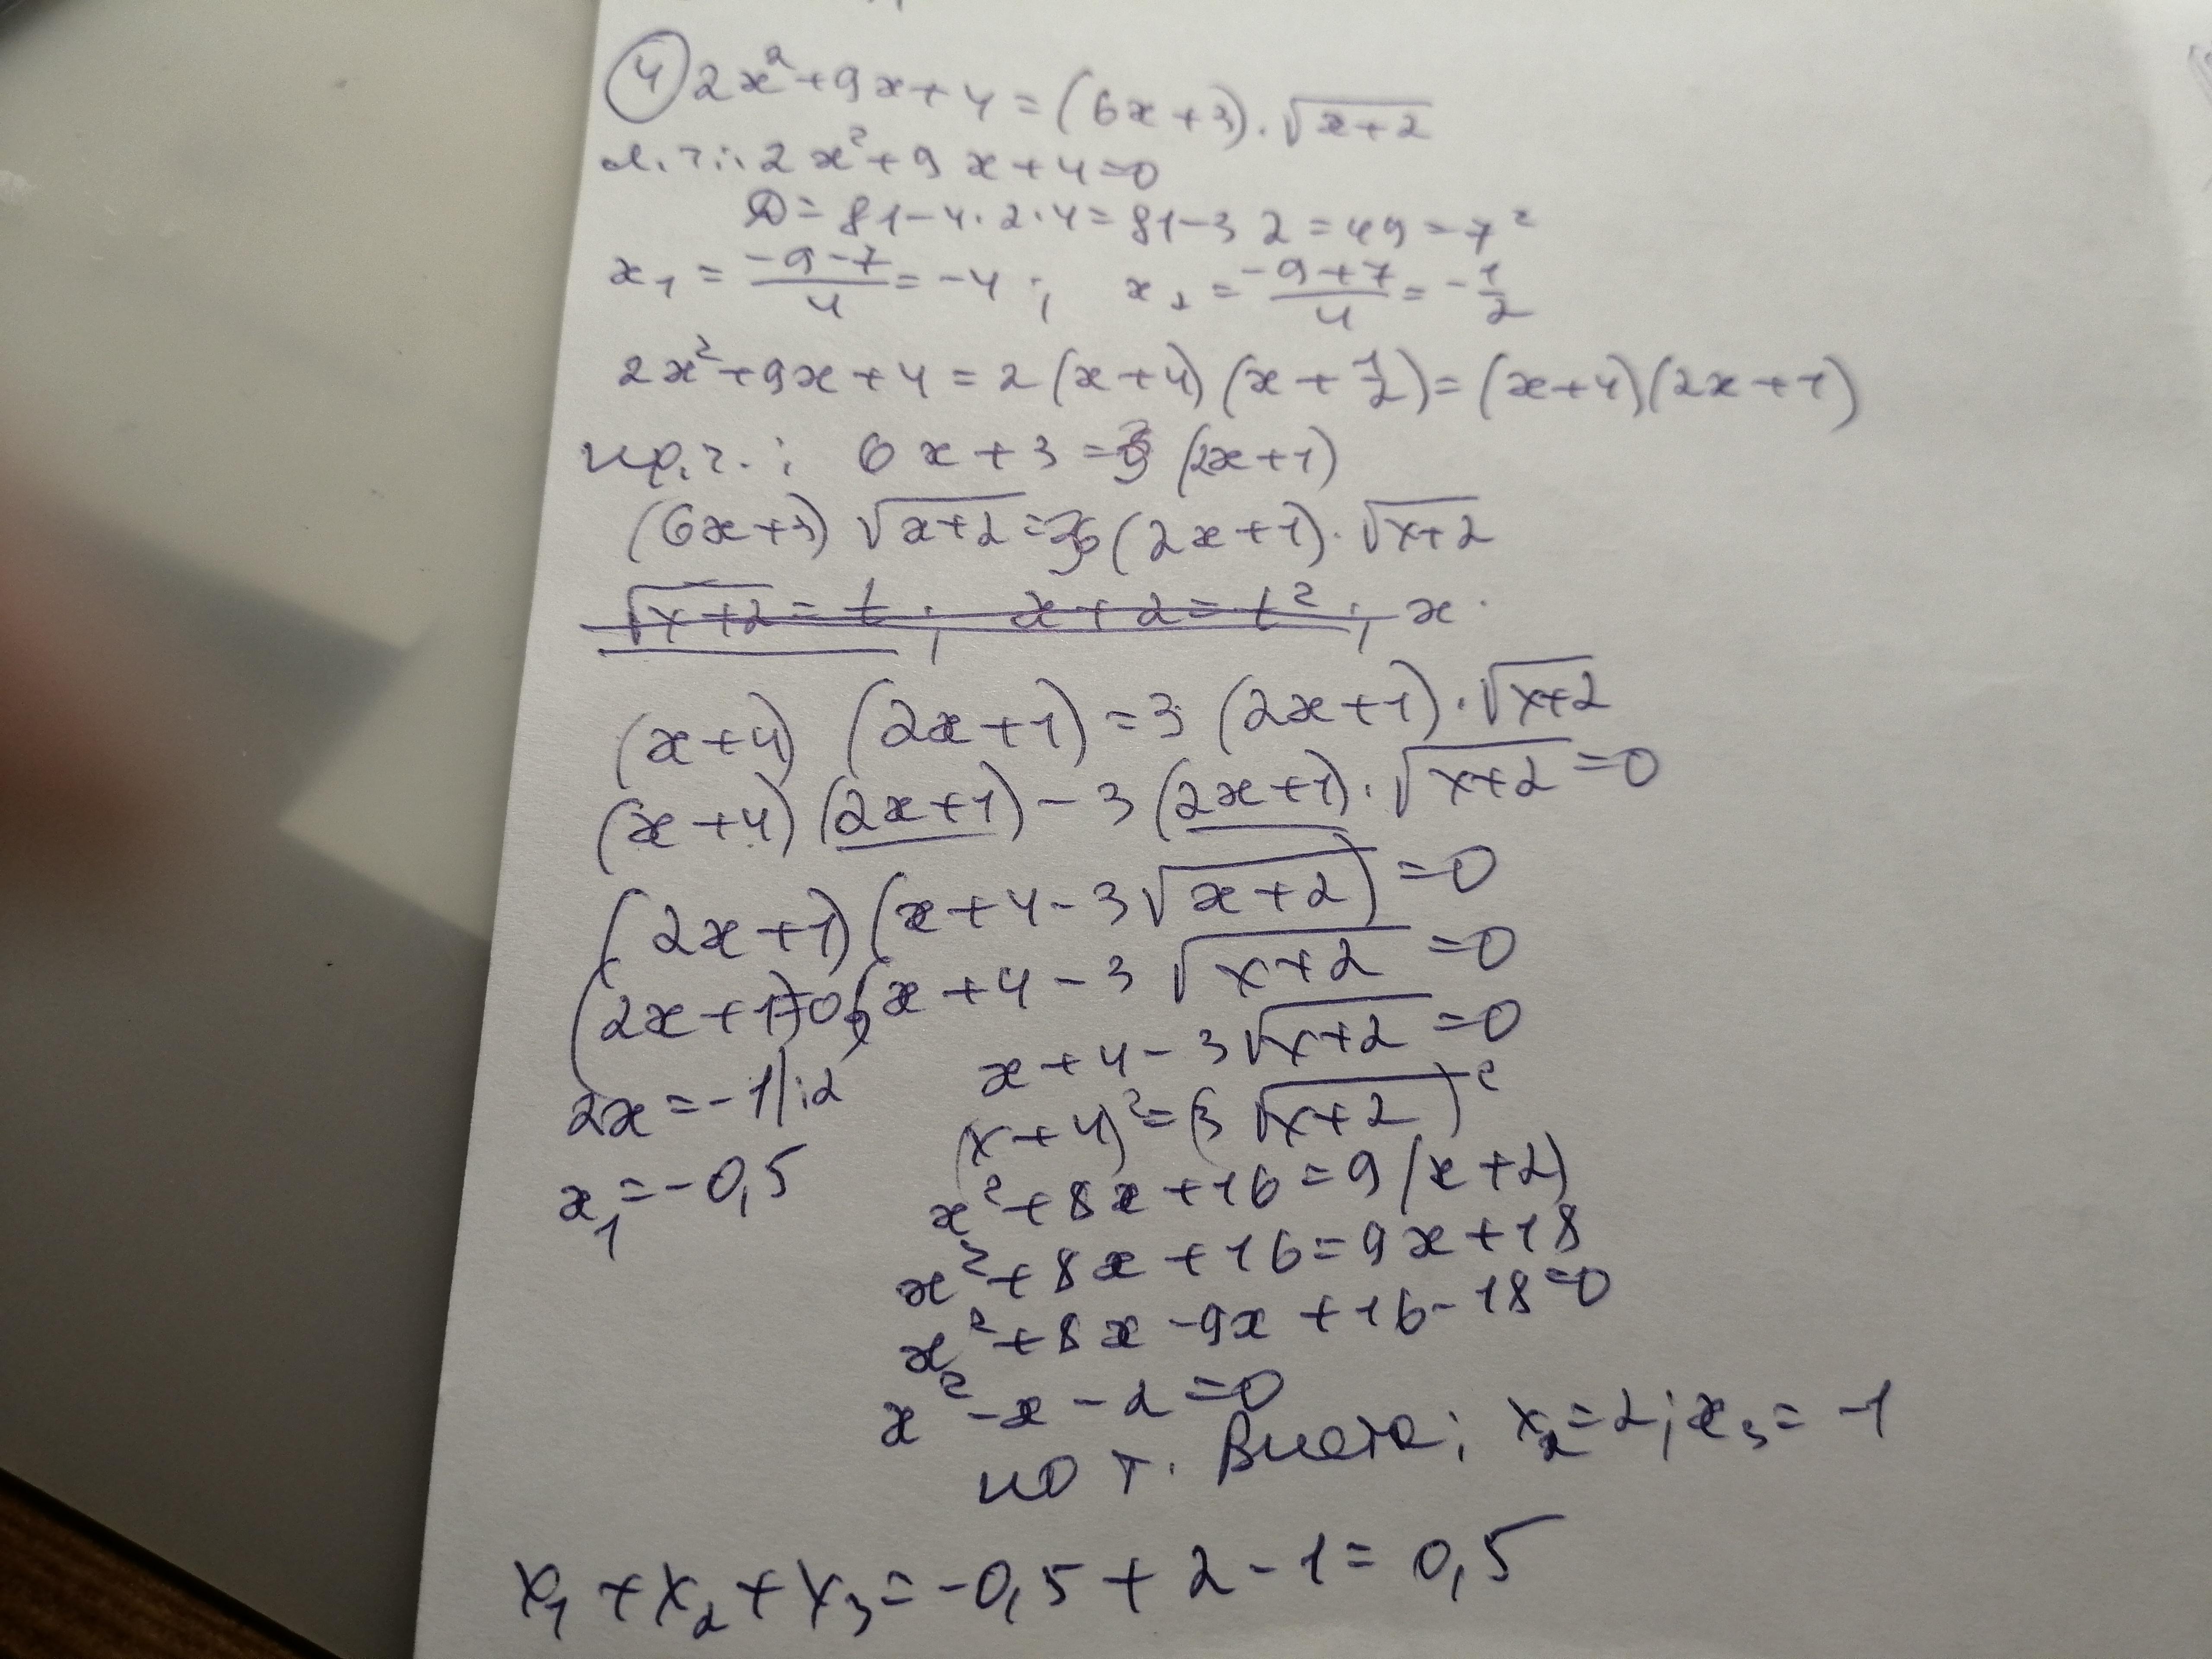 ④ 2x²+9x+4=(6x+3)·√(x+2)
л.ч.: 2x²+9x+4=0
D=81-4·2·4=81-32=49=7²
x₁=(-9-7)/4=-4; x₂=(-9+7)/4=-1/2
2x²+9x+4=2(x+4)(x+1/2)=(x+4)(2x+1)
пр.ч.: 6x+3=3(2x+1)
(6x+3)√(x+2)=3(2x+1)·√(x+2)
√(x+2)=t; x+2=t²; x
(x+4)(2x+1)=3(2x+1)·√(x+2)
(x+4)(2x+1)-3(2x+1)·√(x+2)=0
(2x+1)(x+4-3√(x+2))=0
(2x+1)=0; x+4-3√(x+2)=0
x+4-3√(x+2)=0
2x=-1|:2
(x+4)²=(3√(x+2))²
x₁=-0,5
x²+8x+16=9(x+2)
x²+8x+16=9x+18
x²+8x-9x+16-18=0
x²-x-2=0
по т. Виета; x₂=2; x₃=-1
x₁+x₂+x₃=-0,5+2-1=0,5